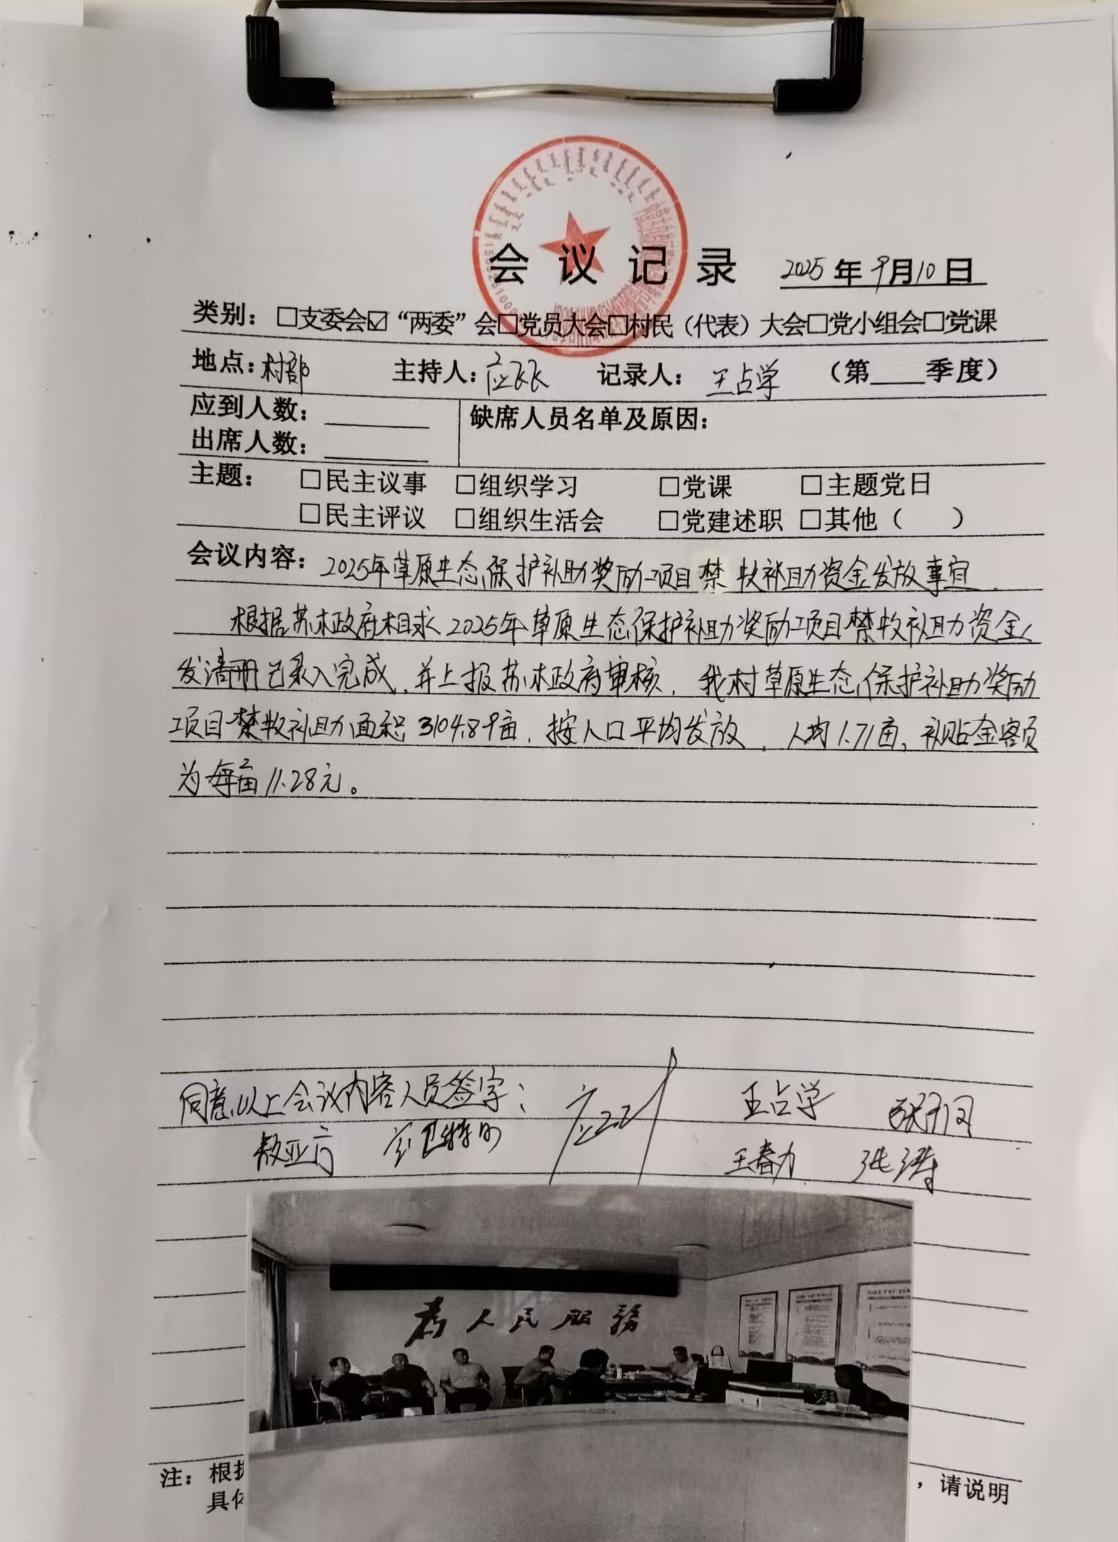 会议记录 2025年9月10日
类别：□支委会☑“两委”会□党员大会□村民（代表）大会□党小组会□党课
地点：村部 主持人： 记录人：王占学 （第 季度）
应到人数： 缺席人员名单及原因：
出席人数：
主题： □民主议事 □组织学习 □党课 □主题党日
□民主评议 □组织生活会 □党建述职 □其他（ ）
会议内容：2025年草原生态保护补助奖励项目禁牧补助资金发放事宜
根据苏木政府相求2025年草原生态保护补助奖励项目禁牧补助资金
发清册已录入完成，并上报苏木政府审核，我村草原生态保护补助奖励
项目禁牧补助面积3104.89亩，按人口平均发放，人均1.71亩，补贴金额
为每亩11.28元。
同意以上会议内容人员签字： 王占学
王春力 张涛
为人民服务
注：根
具体 ，请说明